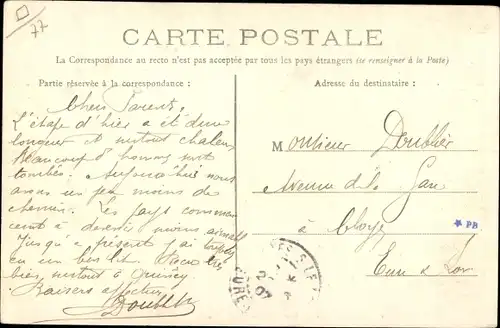 77
CARTE POSTALE
La Correspondance au recto n'est pas acceptée par tous les pays étrangers (se renseigner à la Poste)
Partie réservée à la correspondance :
Chers Parents,
L'étape d'hier a été dure
longueur et surtout chaleur
Beaucoup d'hommes sont
tombés. Aujourd'hui nous
avons un peu moins de
chemin. Les pays commen
cent à devenir moins
Jusqu'à présent j'ai toujours
eu un bon lit. Reçu très
bien, surtout à Quincy
Baisers affectueux
Doublier
Adresse du destinataire :
Monsieur Doublier
Avenue de la Gare
à Cloyes
Eure & Loir
* PB
07
EURE